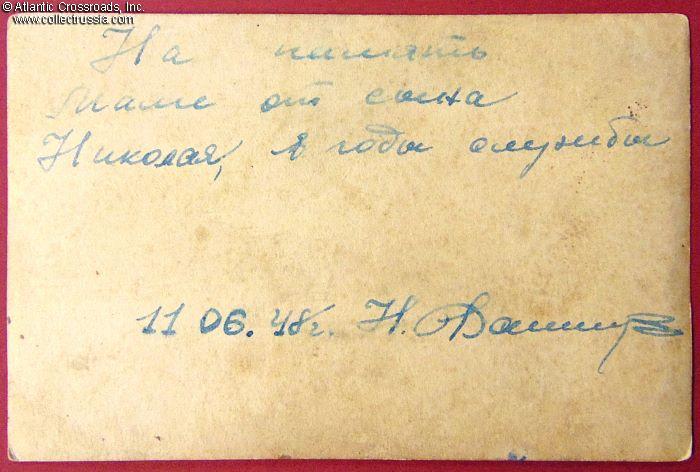 © Atlantic Crossroads, Inc.
www.collectrussia.com
На память
Маме от сына
Николая, в годы службы
11 06. 48г. Н.